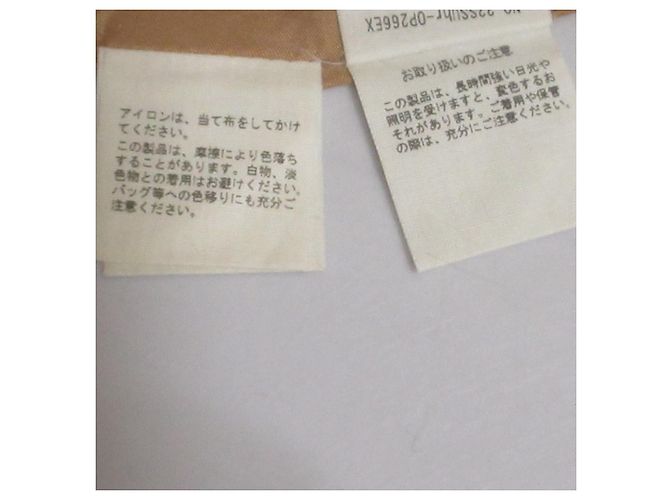 アイロンは、当て布をしてかけ
てください。
この製品は、摩擦により色落ち
することがあります。白物、淡
色物との着用はお避けください。
バッグ等への色移りにも充分ご
注意ください。
NO.22SSUhr-OP266EX
お取り扱いのご注意
この製品は、長時間強い日光や
照明を受けますと、変色するお
それがあります。ご着用や保管
の際は、充分にご注意ください。